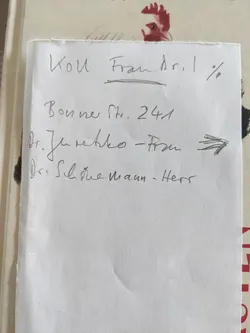 Koll Frau Dr. 1 %
Bonner Str. 241
Dr. Juretzko - Frau →
Dr. Schünemann - Herr